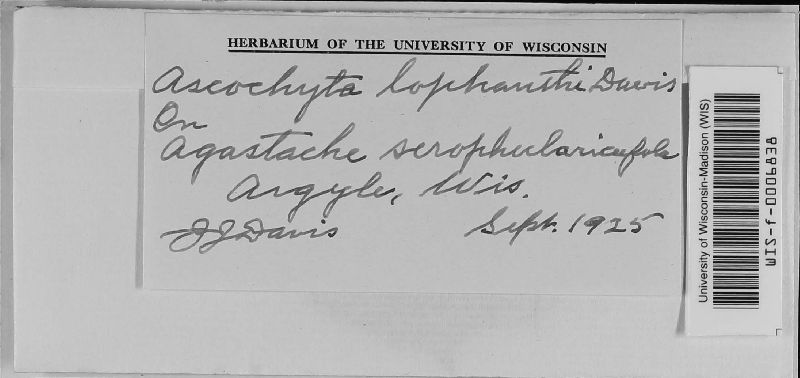 HERBARIUM OF THE UNIVERSITY OF WISCONSIN
Ascochyta lophanthi Davis
On
Agastache scrophulariaefolia
Argyle, Wis.
JJ Davis Sept. 1925
University of Wisconsin-Madison (WIS)
WIS-f-0006838